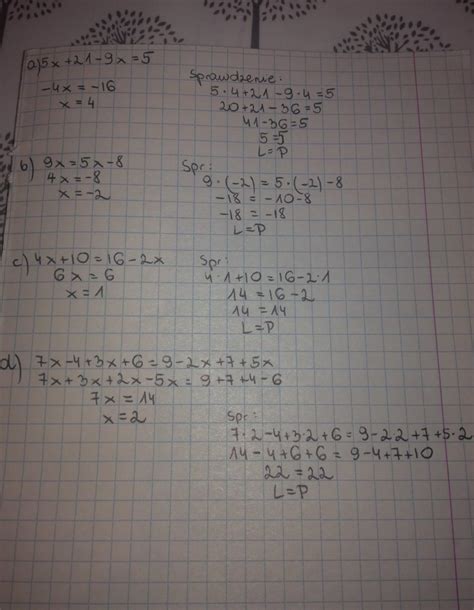 a) 5x+21-9x=5
-4x = -16
x = 4
Sprawdzenie:
5·4+21-9·4=5
20+21-36=5
41-36=5
5=5
L=P
b) 9x=5x-8
4x=-8
x=-2
Spr:
9·(-2)=5·(-2)-8
-18 = -10-8
-18 = -18
L=P
c) 4x+10=16-2x
6x=6
x=1
Spr:
4·1+10=16-2·1
14=16-2
14=14
L=P
d) 7x-4+3x+6=9-2x+7+5x
7x+3x+2x-5x=9+7+4-6
7x=14
x=2
Spr:
7·2-4+3·2+6=9-2·2+7+5·2
14-4+6+6=9-4+7+10
22=22
L=P